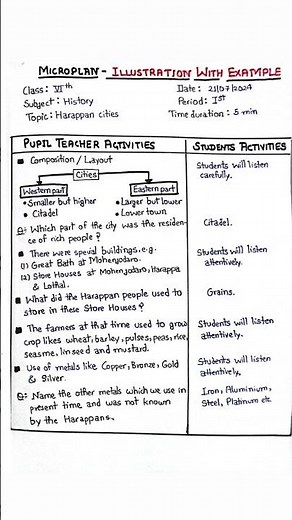 MICROPLAN - ILLUSTRATION WITH EXAMPLE
Class: VIth
Date: 21/07/2024
Subject: History
Period: Ist
Topic: Harappan cities
Time duration: 5 min
PUPIL TEACHER ACTIVITIES
STUDENTS ACTIVITIES
Composition / Layout
Students will listen
carefully.
Cities
Western part
Eastern part
• Smaller but higher
• Larger but lower
• Citadel
• Lower town
Q: Which part of the city was the residen-
ce of rich people?
Citadel.
There were special buildings, e.g.
(1) Great Bath at Mohenjodaro.
(2) Store Houses at Mohenjodaro, Harappa
& Lothal.
Students will listen
attentively.
What did the Harappan people used to
store in these Store Houses?
Grains.
The farmers at that time used to grow
crop like wheat, barley, pulses, peas, rice,
seasme, linseed and mustard.
Students will listen
attentively.
Use of metals like Copper, Bronze, Gold
& Silver.
Students will listen
attentively.
Q: Name the other metals which we use in
present time and was not known
by the Harappans.
Iron, Aluminium,
Steel, Platinum etc.